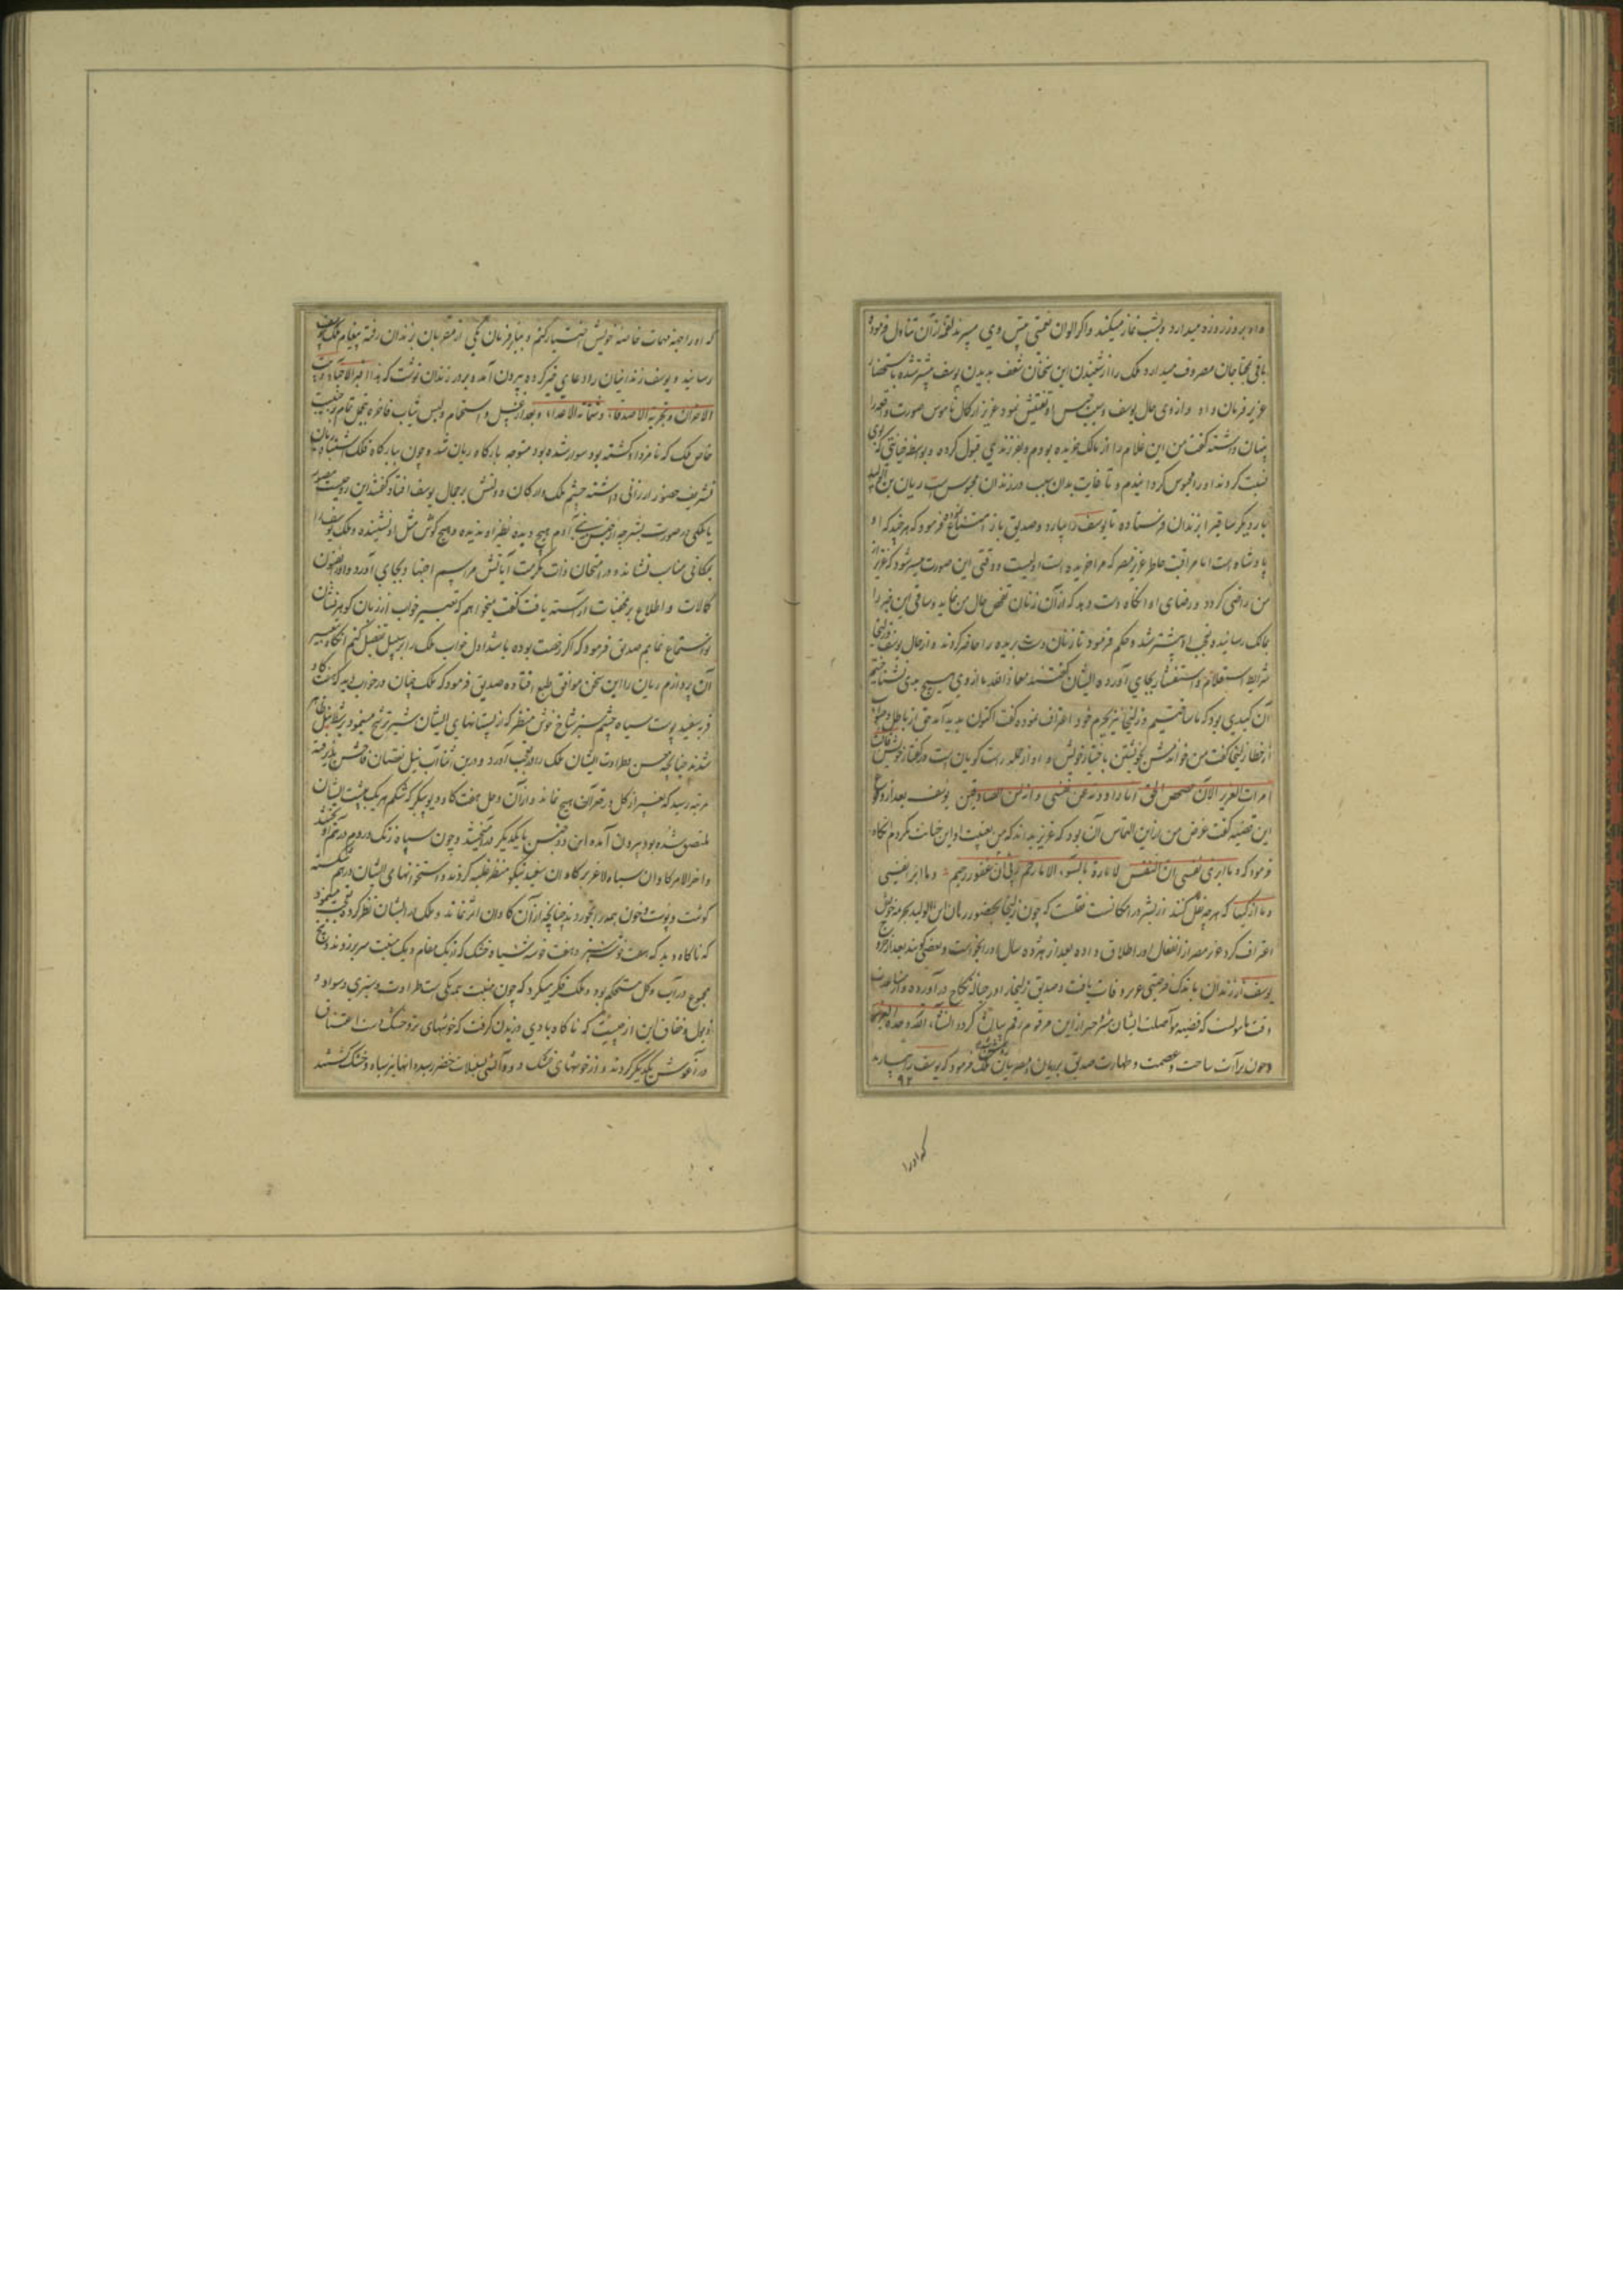 واو بروز روزه میدارد و بشب نماز میکند و اگر الوان نعمتی پیش وی میبرند لقمه از آن تناول فرموده
باقی بمحتاجان مصروف میدارد ملک را از شنیدن این سخنان شغف بدیدن یوسف بیشتر شده باستحضار
عزیز فرمان داد و از وی حال یوسف و سبب حبس او تفتیش نمود عزیز از کمال ناموس صورت واقعه را
پنهان داشته گفت من این غلام را از مالک خریده بودم و بفرزندی قبول کرده و بواسطه خیانتی که بوی
نسبت کردند او را محبوس گردانیدم و تا غایت بدان سبب در زندان محبوس است ریان بن الولید
بار دیگر ساقی را بزندان فرستاده تا یوسف را بیارد و صدیق باز امتناع نموده فرمود که هر چند که او
پادشاه است اما مراقبت خاطر عزیز مصر که مرا خریده است اولیست و وقتی این صورت میسر شود که عزیز از
من راضی گردد و رضای او آنگاه دست دهد که از آن زنان تفحص حال من نماید و ساقی این خبر را
بملک رسانیده تعجب او بیشتر شد و حکم فرمود تا زنان دست بریده را حاضر کردند و از حال یوسف و زلیخا
شرایط استعلام و استفسار بجای آورده ایشان گفتند معاذ الله ما از وی هیچ بدی نشناختیم
آن کیدی بود که ما ساختیم و زلیخا نیز بجرم خود اعتراف نموده گفت اکنون پدید آمد حق از باطل و صواب
از خطا زلیخا گفت من خواندمش بخویشتن باختیار خویش و او از جمله راست گویان است در گفتار خویش قالت
امرات العزیز الآن حصحص الحق انا راودته عن نفسی و انه لمن الصادقین یوسف بعد از وقوع
این قضیه گفت غرض من ازین التماس آن بود که عزیز بداند که من بغیبت او این خیانت نکردم آنگاه
فرمود که و ما ابری نفسی ان النفس لامارة بالسوء الا ما رحم ربی ان ربی غفور رحیم و ما ابر نفسی
و ما ازکیها که هرچه نقل کنند از بشر در امکانست نقلست که چون زلیخا بحضور ریان ابن الولید بجرم خویش
اعتراف کرد عزیز مصر از انفعال او را طلاق داده بعد از هژده سال او را بخواست و بعضی گویند بعد از خروج
یوسف از زندان باندک فرصتی عزیز وفات یافت و صدیق زلیخا را در حباله نکاح درآورده و از مساعدت
وقت مامولست که قضیه مواصلت ایشان مشروحتر ازین مرقوم رقم بیان گردد انشاء الله وحده العزیز
و چون برآت ساحت و عصمت و طهارت صدیق بر ریان و مصریان روشن شد ملک فرمود که یوسف را بیارید
۹۲
که او را
که او را جهة مهمات خاصه خویش اختیار کنم و بنابر فرمان یکی از مقربان بزندان رفته پیغام ملک بیوسف
رسانید و یوسف زندانیان را دعای خیر کرده بیرون آمده بر در زندان نوشت که هذا قبر الاحیاء و بیت
الاحزان و تجربة الاصدقاء و شماتة الاعداء و بعد از غسل و استحمام و لبس ثیاب فاخره بتجمل تمام بر جنیبت
خاص ملک که نامزد او گشته بود سوار شده متوجه بارگاه ریان شد و چون ببارگاه فلک اشتباه ریان
تشریف حضور ارزانی داشته چشم ملک و ارکان دولتش بر جمال یوسف افتاد گفتند این روحیست مصور
یا ملکی در صورت بشر چه از جنس بنی آدم هیچ دیده نظیر او ندیده و هیچ گوش مثل او نشنیده و ملک یوسف را
بمکانی مناسب نشانده در امتحان ذات مکرمت آیاتش مراسم اجتهاد بجای آورد و او را بفنون
کمالات و اطلاع بر مخفیات آراسته یافت گفت میخواهم که تعبیر خواب از زبان گوهر فشان
تو استماع نمایم صدیق فرمود که اگر رخصت بوده باشد اول خواب ملک را بر سبیل تفصیل کنم آنگاه بتعبیر
آن پردازم ریان را این سخن موافق طبع افتاده صدیق فرمود که ملک چنان در خواب دید که هفت گاو
فربه سفید پوست سیاه چشم سبز شاخ خوش منظر که از پستانهای ایشان شیر ترشح مینمود از نیل ظاهر
شدند چنانچه حسن و طراوت ایشان ملک را در تعجب آورد و درین اثنا آب نیل نقصان فاحش پذیرفته
بمرتبه رسید که بغیر از گل در قعر آن هیچ نماند و از آن وحل هفت گاو دیو پیکر که شکم هر یک بپشت ایشان
ملتصق شده بود بیرون آمده این دو جنس با یکدیگر درآمیختند و چون سپاه زنگ و روم در هم آویختند
و آخر الامر گاوان سیاه لاغر بر گاوان سفید نیکو منظر غلبه کردند و استخوانهای ایشان درهم شکسته
گوشت و پوست و خون همه را بخوردند چنانچه از آن گاوان اثر نماند و ملک در ایشان نظر کرده تعجب مینمود
که ناگاه دید که هفت خوشه سبز و هفت خوشه سیاه خشک که از یک مقام و یک منبت سر برزدند و بیخ
مجموع در آب و گل مستحکم بود و ملک فکر میکرد که چون منبت همه یکی است طراوت و سبزی و سواد و
ذبول و جفاف این از چیست که ناگاه بادی وزیدن گرفت که خوشهای تر و خشک دست اعتناق
در آغوش یکدیگر کردند و از خوشهای خشک دود و آتش بسنبلات خضر رسیده آنها نیز سیاه و خشک گشتند